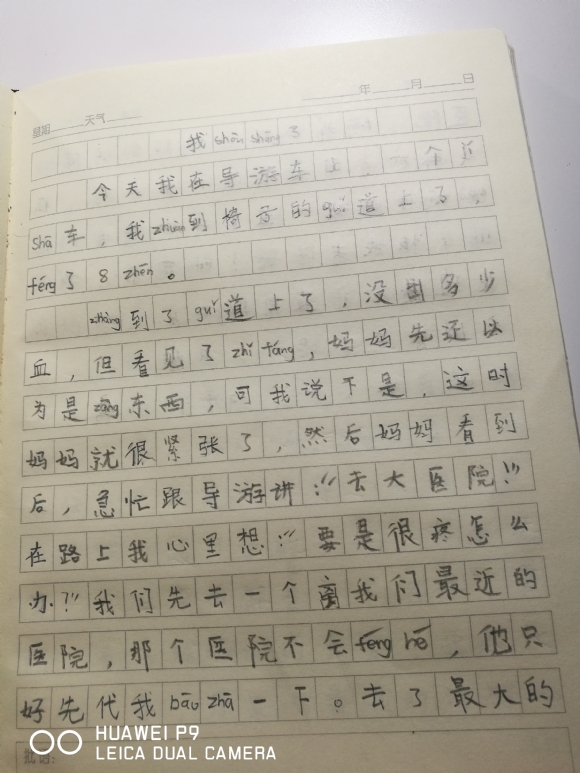 年 月 日
星期 天气
我shòu shāng了
今天我在导游车上,一个急
Shā车,我zhuàn到椅子的guǐ道上了,
féng了8zhēn。
zhàng到了guǐ道上了,没出多少
血,但看见了zhī fáng,妈妈先还以
为是zāng东西,可我说不是,这时
妈妈就很紧张了,然后妈妈看到
后,急忙跟导游讲:“去大医院!”
在路上我心里想:“要是很疼怎么
办?”我们先去一个离我们最近的
医院,那个医院不会féng hé,他只
好先代我bāo zhā一下。去了最大的
批语:
HUAWEI P9
LEICA DUAL CAMERA